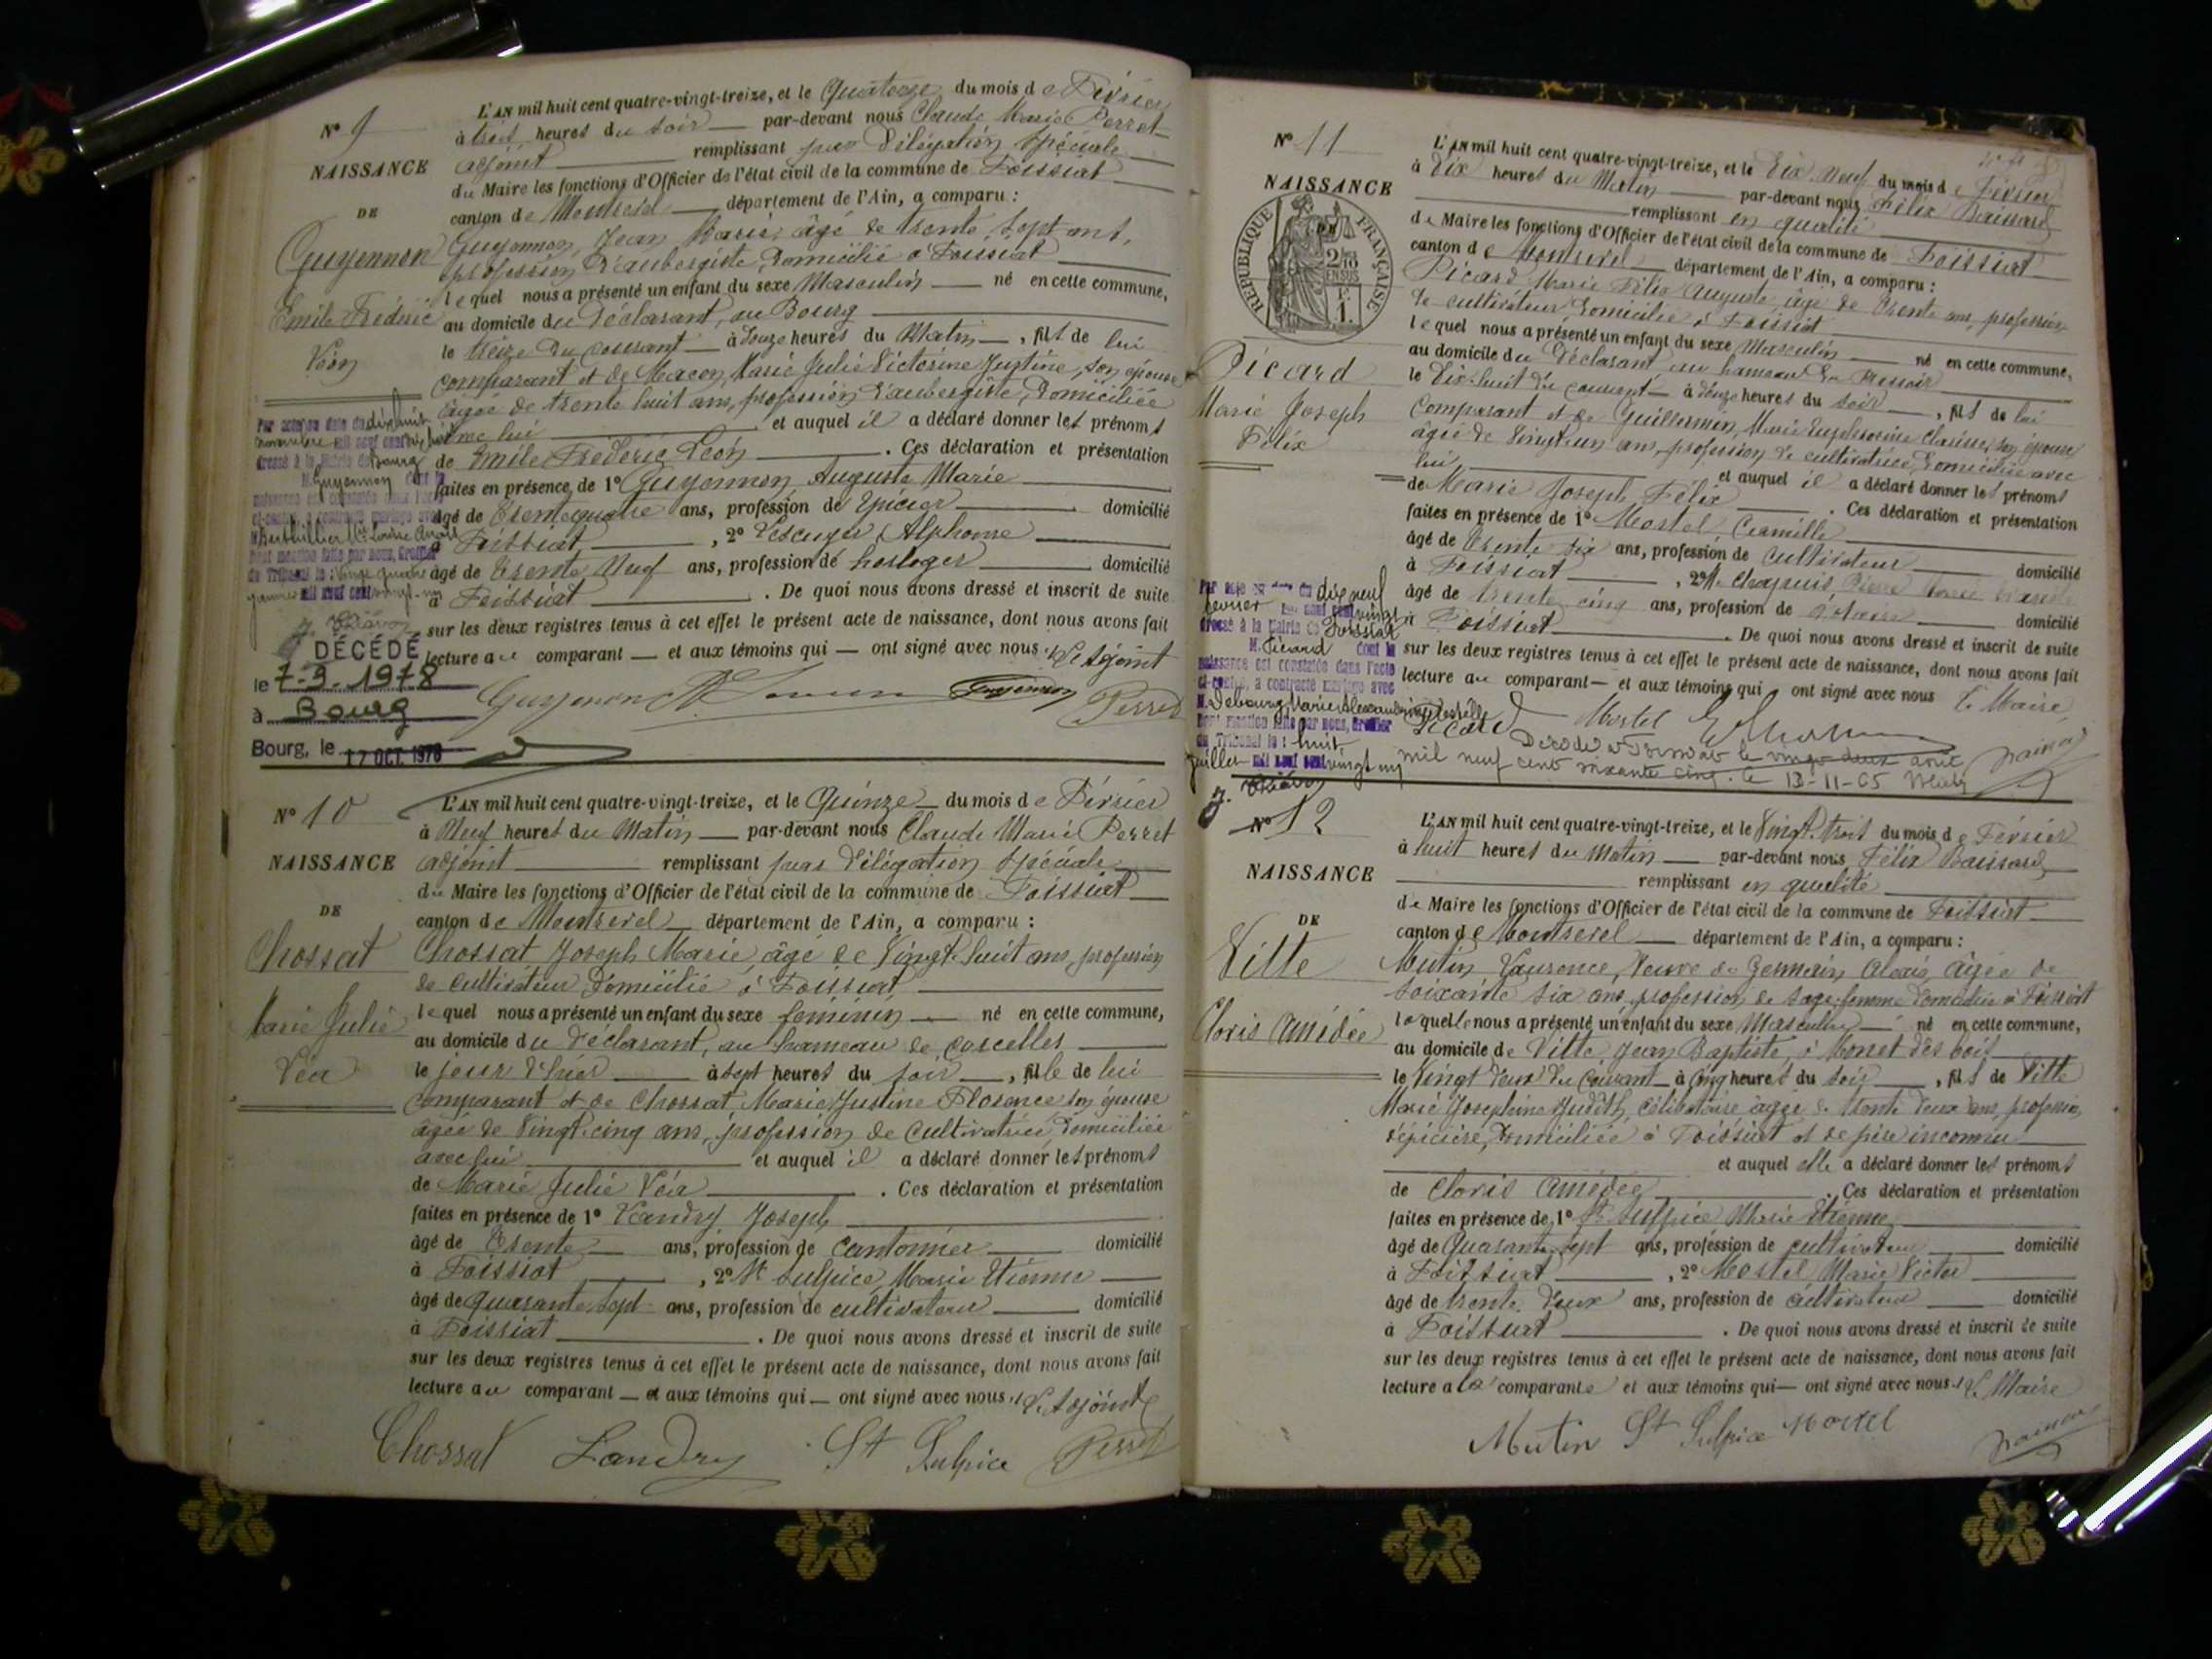 N° 9
NAISSANCE
DE
Guyennon
Emile Fréderic
Léon
L'AN mil huit cent quatre-vingt-treize, et le Quatorze du mois de Février
à trois heures du soir par-devant nous Claude Marie Perret
adjoint remplissant par Délégation Spéciale
du Maire les fonctions d'Officier de l'état civil de la commune de Foissiat
canton de Montrevel département de l'Ain, a comparu :
Guyennon, Jean Marie, âgé de trente sept ans,
profession d'aubergiste, domicilié à Foissiat
lequel nous a présenté un enfant du sexe Masculin né en cette commune,
au domicile du Déclarant, au Bourg
le treize du courant à douze heures du Matin, fils de lui
comparant et de Macon, Marie Julie Victorine Justine, son épouse
âgée de trente huit ans, profession d'aubergiste, domiciliée
lui et auquel il a déclaré donner les prénoms
de Emile Fréderic Léon. Ces déclaration et présentation
faites en présence de 1° Guyennon Auguste Marie
âgé de trente quatre ans, profession de Epicier domicilié
à Foissiat, 2° Alphonse
âgé de trente Neuf ans, profession de horloger domicilié
à Foissiat. De quoi nous avons dressé et inscrit de suite
sur les deux registres tenus à cet effet le présent acte de naissance, dont nous avons fait
lecture au comparant et aux témoins qui ont signé avec nous. L'Adjoint
Guyennon Perret
DÉCÉDÉ
le 7-9-1978
à Bourg
Bourg, le 17 OCT. 1978
N° 10
NAISSANCE
DE
Chossat
Marie Julie
Léa
L'AN mil huit cent quatre-vingt-treize, et le Quinze du mois de Février
à Neuf heures du Matin par-devant nous Claude Marie Perret
adjoint remplissant par Délégation Spéciale
du Maire les fonctions d'Officier de l'état civil de la commune de Foissiat
canton de Montrevel département de l'Ain, a comparu :
Chossat Joseph Marie, âgé de Vingt-huit ans, profession
de cultivateur domicilié à Foissiat
lequel nous a présenté un enfant du sexe féminin né en cette commune,
au domicile du Déclarant, au hameau de Corcelles
le jour d'hier à sept heures du soir, fille de lui
comparant et de Chossat Marie Justine Florence son épouse
âgée de Vingt-cinq ans, profession de Cultivatrice, domiciliée
avec lui et auquel il a déclaré donner les prénoms
de Marie Julie Léa. Ces déclaration et présentation
faites en présence de 1° Landry Joseph
âgé de trente ans, profession de Cantonnier domicilié
à Foissiat, 2° St Sulpice, Marie Etienne
âgé de quarante sept ans, profession de cultivateur domicilié
à Foissiat. De quoi nous avons dressé et inscrit de suite
sur les deux registres tenus à cet effet le présent acte de naissance, dont nous avons fait
lecture au comparant et aux témoins qui ont signé avec nous. L'Adjoint
Chossat Landry St Sulpice Perret
N° 11
NAISSANCE
DE
REPUBLIQUE FRANÇAISE
2/10 EN SUS
1F.
Picard
Marie Joseph
Félix
L'AN mil huit cent quatre-vingt-treize, et le Dix Neuf du mois de Février
à Dix heures du Matin par-devant nous Félix
remplissant en qualité
de Maire les fonctions d'Officier de l'état civil de la commune de Foissiat
canton de Montrevel département de l'Ain, a comparu :
Picard Marie Félix Auguste, âgé de trente ans, profession
de cultivateur, domicilié à Foissiat
lequel nous a présenté un enfant du sexe Masculin né en cette commune,
au domicile du Déclarant au hameau du Pressoir
le Dix-huit du courant à douze heures du soir, fils de lui
Comparant et de Guillermin, Marie Clarisse, son épouse
âgée de Vingt un ans, profession de cultivatrice, domiciliée avec
lui et auquel il a déclaré donner les prénoms
de Marie Joseph Félix. Ces déclaration et présentation
faites en présence de 1° Mostel Camille
âgé de trente six ans, profession de cultivateur domicilié
à Foissiat, 2° Chapuis Pierre Marie
âgé de trente cinq ans, profession de Notaire domicilié
à Foissiat. De quoi nous avons dressé et inscrit de suite
sur les deux registres tenus à cet effet le présent acte de naissance, dont nous avons fait
lecture au comparant et aux témoins qui ont signé avec nous Le Maire
Picard Mostel
Décédé à le vingt-deux août
mil neuf cent soixante cinq. Le 13-11-65
N° 12
NAISSANCE
DE
Vitte
Cloris Amédée
L'AN mil huit cent quatre-vingt-treize, et le Vingt-trois du mois de Février
à huit heures du Matin par-devant nous Félix
remplissant en qualité
de Maire les fonctions d'Officier de l'état civil de la commune de Foissiat
canton de Montrevel département de l'Ain, a comparu :
Mutin Laurence, Veuve de Germain Alexis, âgée de
soixante six ans, profession de sage-femme domiciliée à Foissiat
laquelle nous a présenté un enfant du sexe Masculin né en cette commune,
au domicile de Vitte, Jean Baptiste, à Monet des bois
le Vingt deux du Courant à cinq heures du soir, fils de Vitte
Marie Josephine Judith, célibataire âgée de trente deux ans, profession
d'épicière, domiciliée à Foissiat et de père inconnu
et auquel elle a déclaré donner les prénoms
de Cloris Amédée. Ces déclaration et présentation
faites en présence de 1° St Sulpice Marie Etienne
âgé de Quarante sept ans, profession de cultivateur domicilié
à Foissiat, 2° Mostel Marie Victor
âgé de trente deux ans, profession de cultivateur domicilié
à Foissiat. De quoi nous avons dressé et inscrit de suite
sur les deux registres tenus à cet effet le présent acte de naissance, dont nous avons fait
lecture à la comparante et aux témoins qui ont signé avec nous. Le Maire
Mutin St Sulpice Mostel